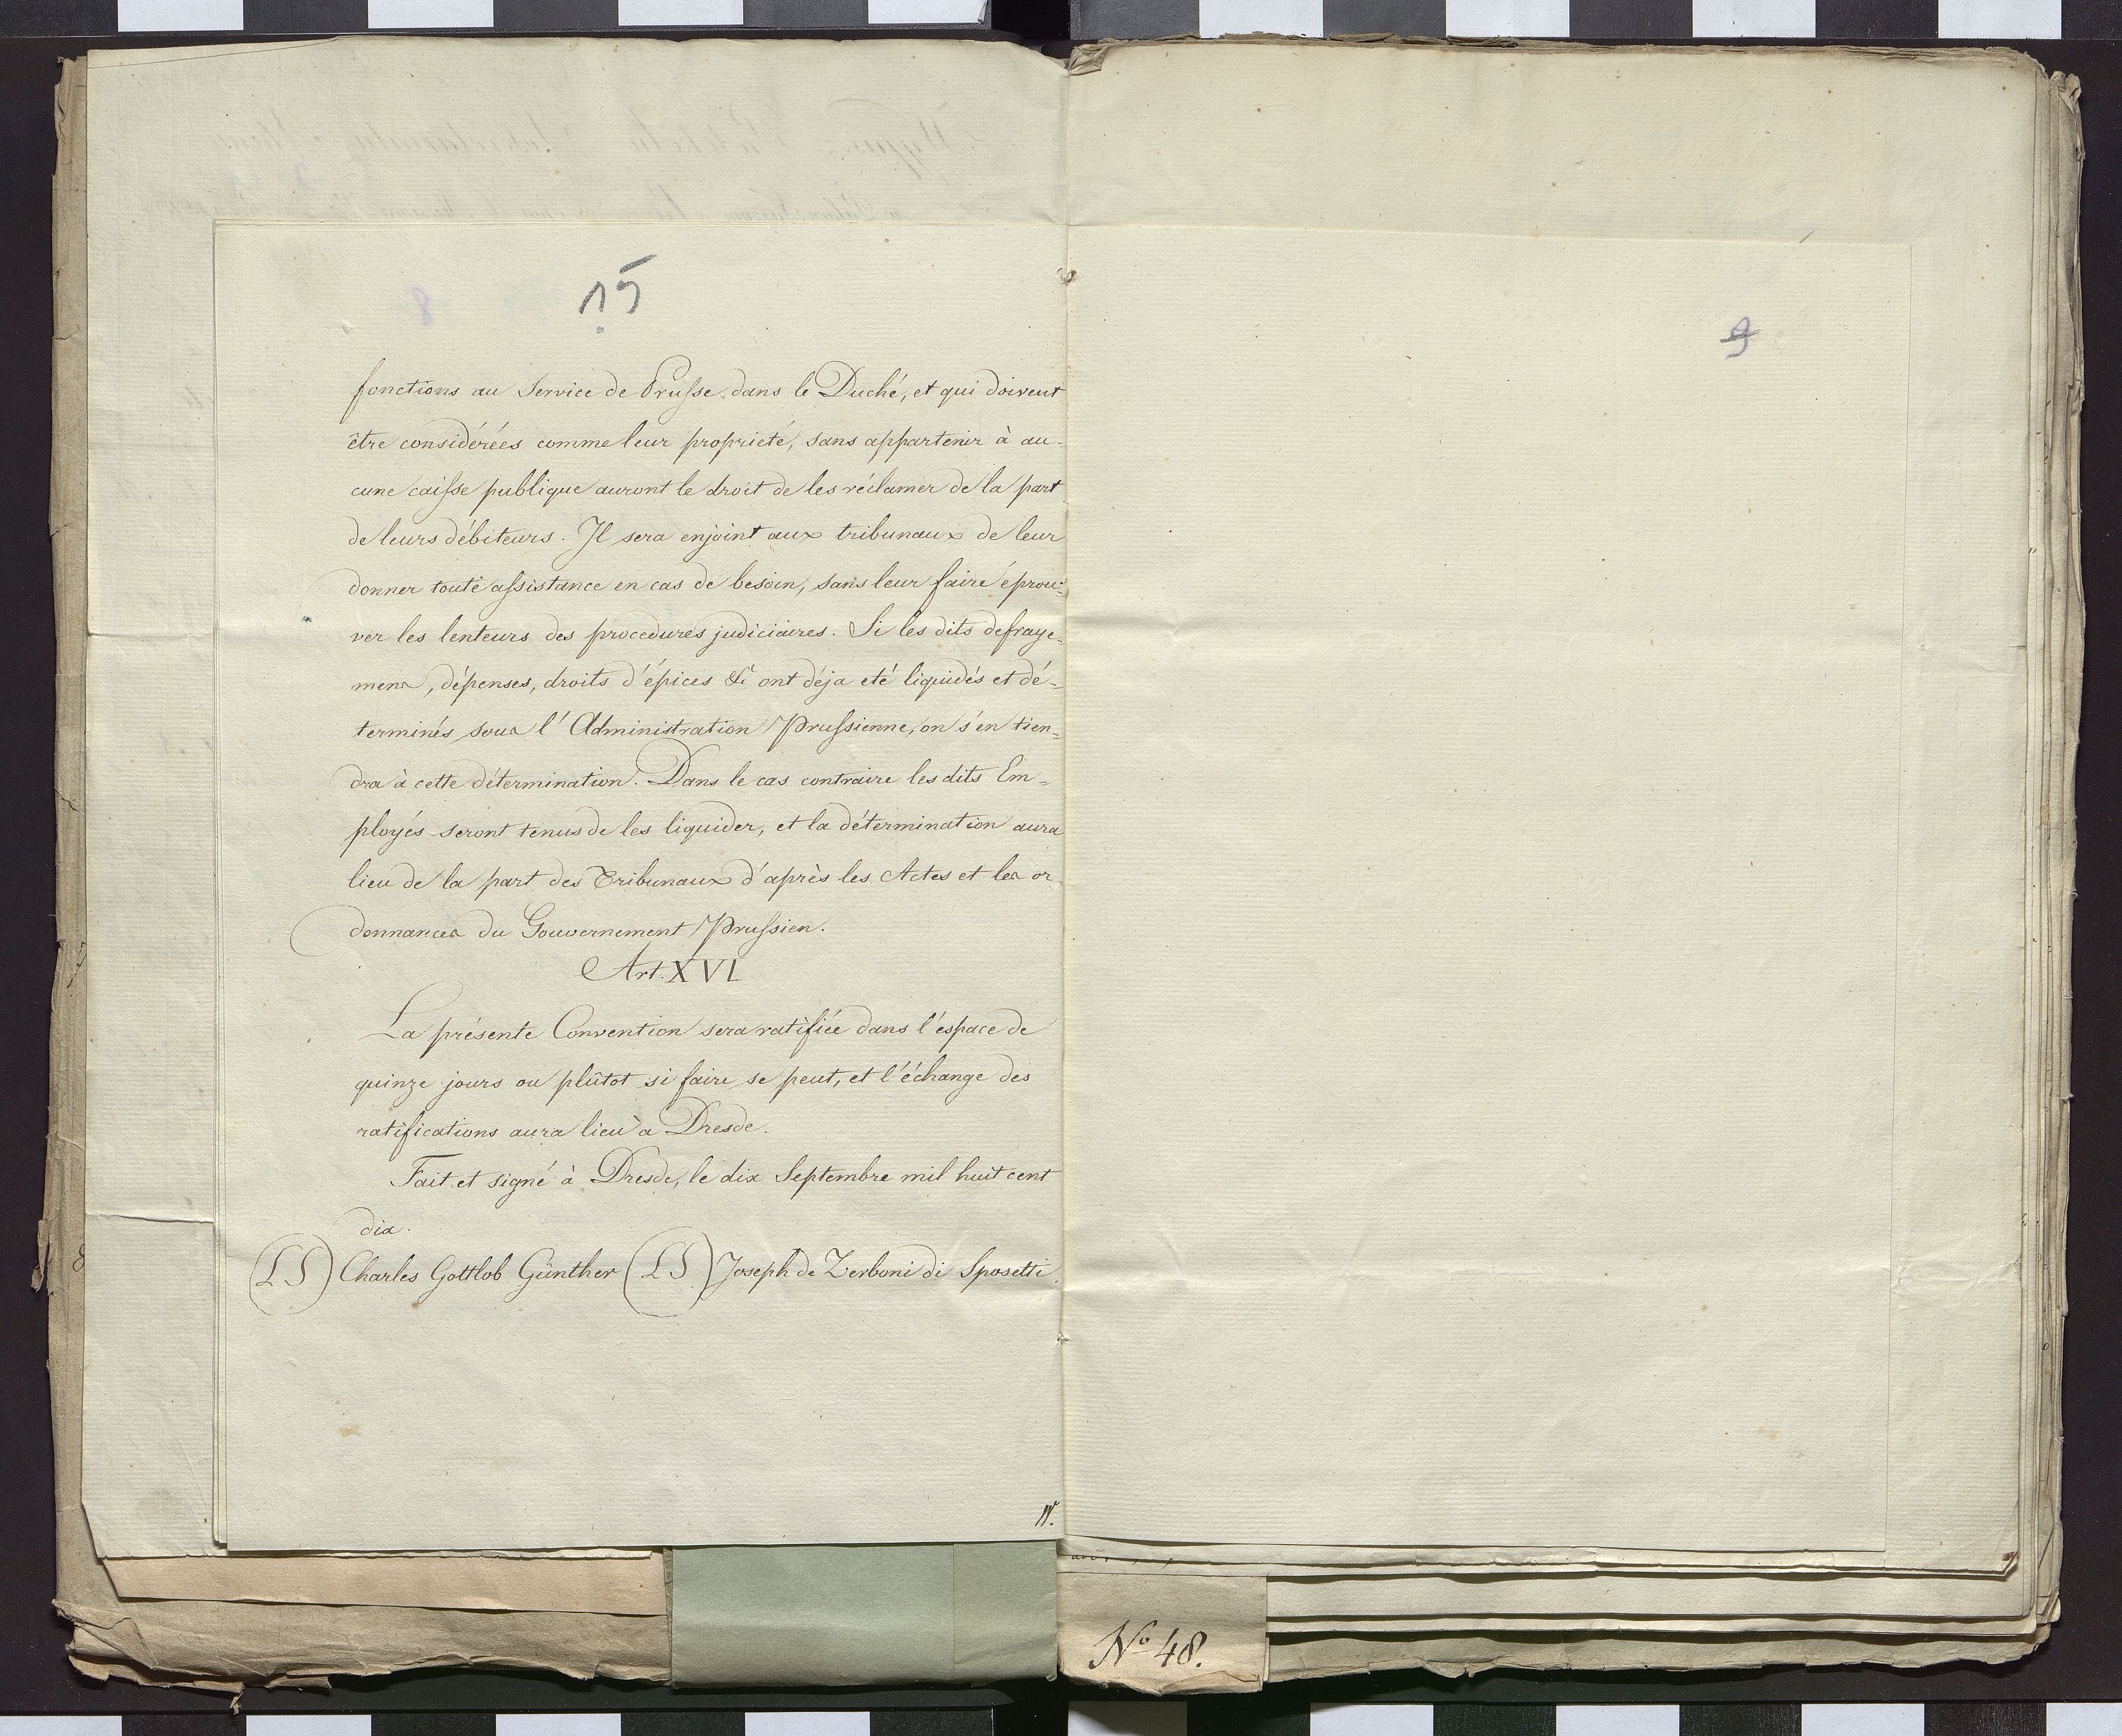 15
fonctions au Service de Prusse dans le Duché, et qui doivent
être considérées comme leur proprieté, sans appartenir à au-
cune caisse publique auront le droit de les réclamer de la part
de leurs débiteurs. Il sera enjoint aux tribunaux de leur
donner toute assistance en cas de besoin, sans leur faire éprou=
ver les lenteurs des procedures judiciaires. Si les dits defraye=
mens, dépenses, droits d'épices &c ont déja eté liquidés et dé=
terminés sous l'Administration Prussienne, on s'en tien=
dra à cette détermination. Dans le cas contraire les dits Em=
ployés seront tenus de les liquider, et la détermination aura
lieu de la part des Tribunaux d'après les Actes et les or-
donnances du Gouvernement Prussien.
Art. XVI
La présente Convention sera ratifiée dans l'espace de
quinze jours ou plûtot si faire se peut, et l'échange des
ratifications aura lieu à Dresde.
Fait et signé à Dresde, le dix Septembre mil huit cent
dix.
(LS) Charles Gottlob Günther (LS) Joseph de Zerboni di Sposetti.
9
No 48.